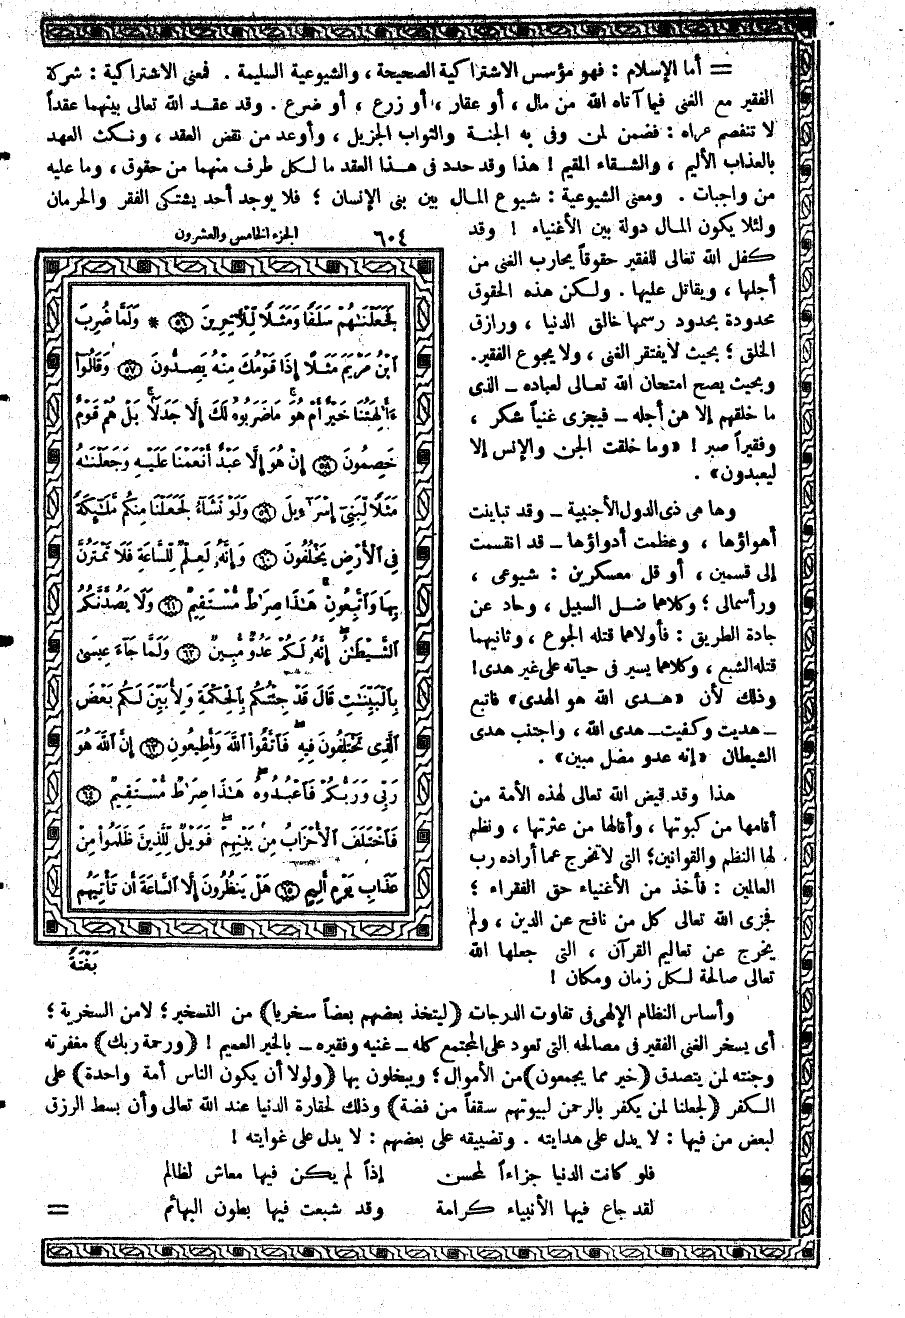 = أما الإسلام : فهو مؤسس الاشتراكية الصحيحة ، والشيوعية السليمة . فمعنى الاشتراكية : شركة
الفقير مع الغنى فيما آتاه الله من مال ، أو عقار ، أو زرع ، أو ضرع . وقد عقد الله تعالى بينهما عقداً
لا تنفصم عراه : فضمن لمن وفى به الجنة والثواب الجزيل ، وأوعد من نقض العقد ، ونكث العهد
بالعذاب الأليم ، والشقاء المقيم ! هذا وقد حدد فى هذا العقد ما لكل طرف منهما من حقوق ، وما عليه
من واجبات . ومعنى الشيوعية : شيوع المال بين بنى الإنسان ؛ فلا يوجد أحد يشتكى الفقر والحرمان
ولئلا يكون المال دولة بين الأغنياء ! وقد
كفل الله تعالى للفقير حقوقاً يحارب الغنى من
أجلها ، ويقاتل عليها . ولكن هذه الحقوق
محدودة بحدود رسمها خالق الدنيا ، ورازق
الخلق ؛ بحيث لا يفتقر الغنى ، ولا يجوع الفقير .
وبحيث يصح امتحان الله تعالى لعباده ــ الذى
ما خلقهم إلا من أجله ــ فيجزى غنياً شكر ،
وفقيراً صبر ! «وما خلقت الجن والإنس إلا
ليعبدون» .
وها هى ذى الدول الأجنبية ــ وقد تباينت
أهواؤها ، وعظمت أدواؤها ــ قد انقسمت
إلى قسمين ، أو قل معسكرين : شيوعى ،
ورأسمالى ؛ وكلاهما ضل السبيل ، وحاد عن
جادة الطريق : فأولاهما قتله الجوع ، وثانيهما
قتله الشبع ، وكلاهما يسير فى حياته على غير هدى !
وذلك لأن «هدى الله هو الهدى» فاتبع
ــ هديت وكفيت ــ هدى الله ، واجتنب هدى
الشيطان «إنه عدو مضل مبين» .
هذا وقد قيض الله تعالى لهذه الأمة من
أقامها من كبوتها ، وأقالها من عثرتها ، ونظم
لها النظم والقوانين؛ التى لا تخرج عما أراده رب
العالمين : فأخذ من الأغنياء حق الفقراء ؛
فجزى الله تعالى كل من نافح عن الدين ، ولم
يخرج عن تعاليم القرآن ، التى جعلها الله
تعالى صالحة لكل زمان ومكان !
٦٠٤ الجزء الخامس والعشرون
فَجَعَلْنَٰهُمْ سَلَفًا وَمَثَلًا لِّلْأَخِرِينَ ﴿٥٦﴾ * وَلَمَّا ضُرِبَ
ٱبْنُ مَرْيَمَ مَثَلًا إِذَا قَوْمُكَ مِنْهُ يَصِدُّونَ ﴿٥٧﴾ وَقَالُوٓا۟
ءَأَٰلِهَتُنَا خَيْرٌ أَمْ هُوَ ۚ مَا ضَرَبُوهُ لَكَ إِلَّا جَدَلًۢا ۚ بَلْ هُمْ قَوْمٌ
خَصِمُونَ ﴿٥٨﴾ إِنْ هُوَ إِلَّا عَبْدٌ أَنْعَمْنَا عَلَيْهِ وَجَعَلْنَٰهُ
مَثَلًا لِّبَنِىٓ إِسْرَٰٓءِيلَ ﴿٥٩﴾ وَلَوْ نَشَآءُ لَجَعَلْنَا مِنكُم مَّلَٰٓئِكَةً
فِى ٱلْأَرْضِ يَخْلُفُونَ ﴿٦٠﴾ وَإِنَّهُۥ لَعِلْمٌ لِّلسَّاعَةِ فَلَا تَمْتَرُنَّ
بِهَا وَٱتَّبِعُونِ ۚ هَٰذَا صِرَٰطٌ مُّسْتَقِيمٌ ﴿٦١﴾ وَلَا يَصُدَّنَّكُمُ
ٱلشَّيْطَٰنُ ۖ إِنَّهُۥ لَكُمْ عَدُوٌّ مُّبِينٌ ﴿٦٢﴾ وَلَمَّا جَآءَ عِيسَىٰ
بِٱلْبَيِّنَٰتِ قَالَ قَدْ جِئْتُكُم بِٱلْحِكْمَةِ وَلِأُبَيِّنَ لَكُم بَعْضَ
ٱلَّذِى تَخْتَلِفُونَ فِيهِ ۖ فَٱتَّقُوا۟ ٱللَّهَ وَأَطِيعُونِ ﴿٦٣﴾ إِنَّ ٱللَّهَ هُوَ
رَبِّى وَرَبُّكُمْ فَٱعْبُدُوهُ ۚ هَٰذَا صِرَٰطٌ مُّسْتَقِيمٌ ﴿٦٤﴾
فَٱخْتَلَفَ ٱلْأَحْزَابُ مِنۢ بَيْنِهِمْ ۖ فَوَيْلٌ لِّلَّذِينَ ظَلَمُوا۟ مِنْ
عَذَابِ يَوْمٍ أَلِيمٍ ﴿٦٥﴾ هَلْ يَنظُرُونَ إِلَّا ٱلسَّاعَةَ أَن تَأْتِيَهُم
بَغْتَةً
وأساس النظام الإلهى فى تفاوت الدرجات (ليتخذ بعضهم بعضاً سخريا) من التسخير ؛ لا من السخرية ؛
أى يسخر الغنى الفقير فى مصالحه التى تعود على المجتمع كله ــ غنيه وفقيره ــ بالخير العميم ! (ورحمة ربك) مغفرته
وجنته لمن يتصدق (خير مما يجمعون) من الأموال ؛ ويبخلون بها (ولولا أن يكون الناس أمة واحدة) على
الكفر (لجعلنا لمن يكفر بالرحمن لبيوتهم سقفاً من فضة) وذلك لحقارة الدنيا عند الله تعالى وأن بسط الرزق
لبعض من فيها : لا يدل على هدايته . وتضييقه على بعضهم : لا يدل على غوايته !
فلو كانت الدنيا جزاءاً لمحسن إذاً لم يكن فيها معاش لظالم
لقد جاع فيها الأنبياء كرامة وقد شبعت فيها بطون البهائم
=